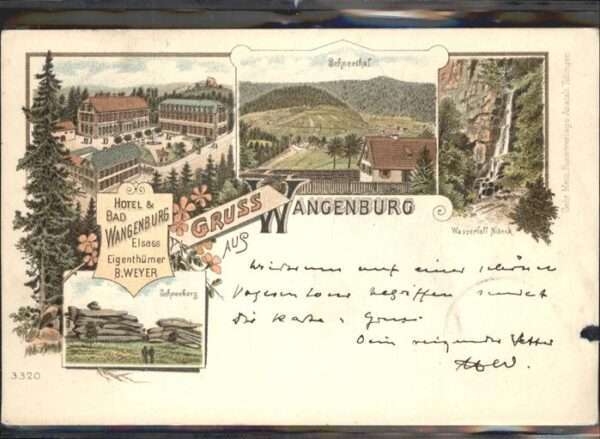 Schneethal
HOTEL &
BAD
WANGENBURG
Elsass
Eigenthümer
B. WEYER
GRUSS
AUS
WANGENBURG
Wasserfall Nideck
Schneeberg
auf einer schönen
Vogesen Tour begriffen sendet
die Karte
Dein Vetter
3320